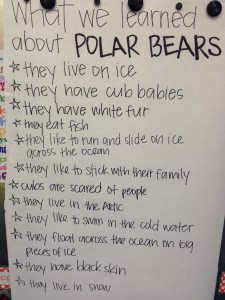 What we learned
about POLAR BEARS
☆ they live on ice
☆ they have cub babies
☆ they have white fur
☆ they eat fish
☆ they like to run and slide on ice
across the ocean
☆ they like to stick with their family
☆ cubs are scared of people
☆ they live in the Arctic
☆ they like to swim in the cold water
☆ they float across the ocean on big
pieces of ice
☆ they have black skin
☆ they live in snow